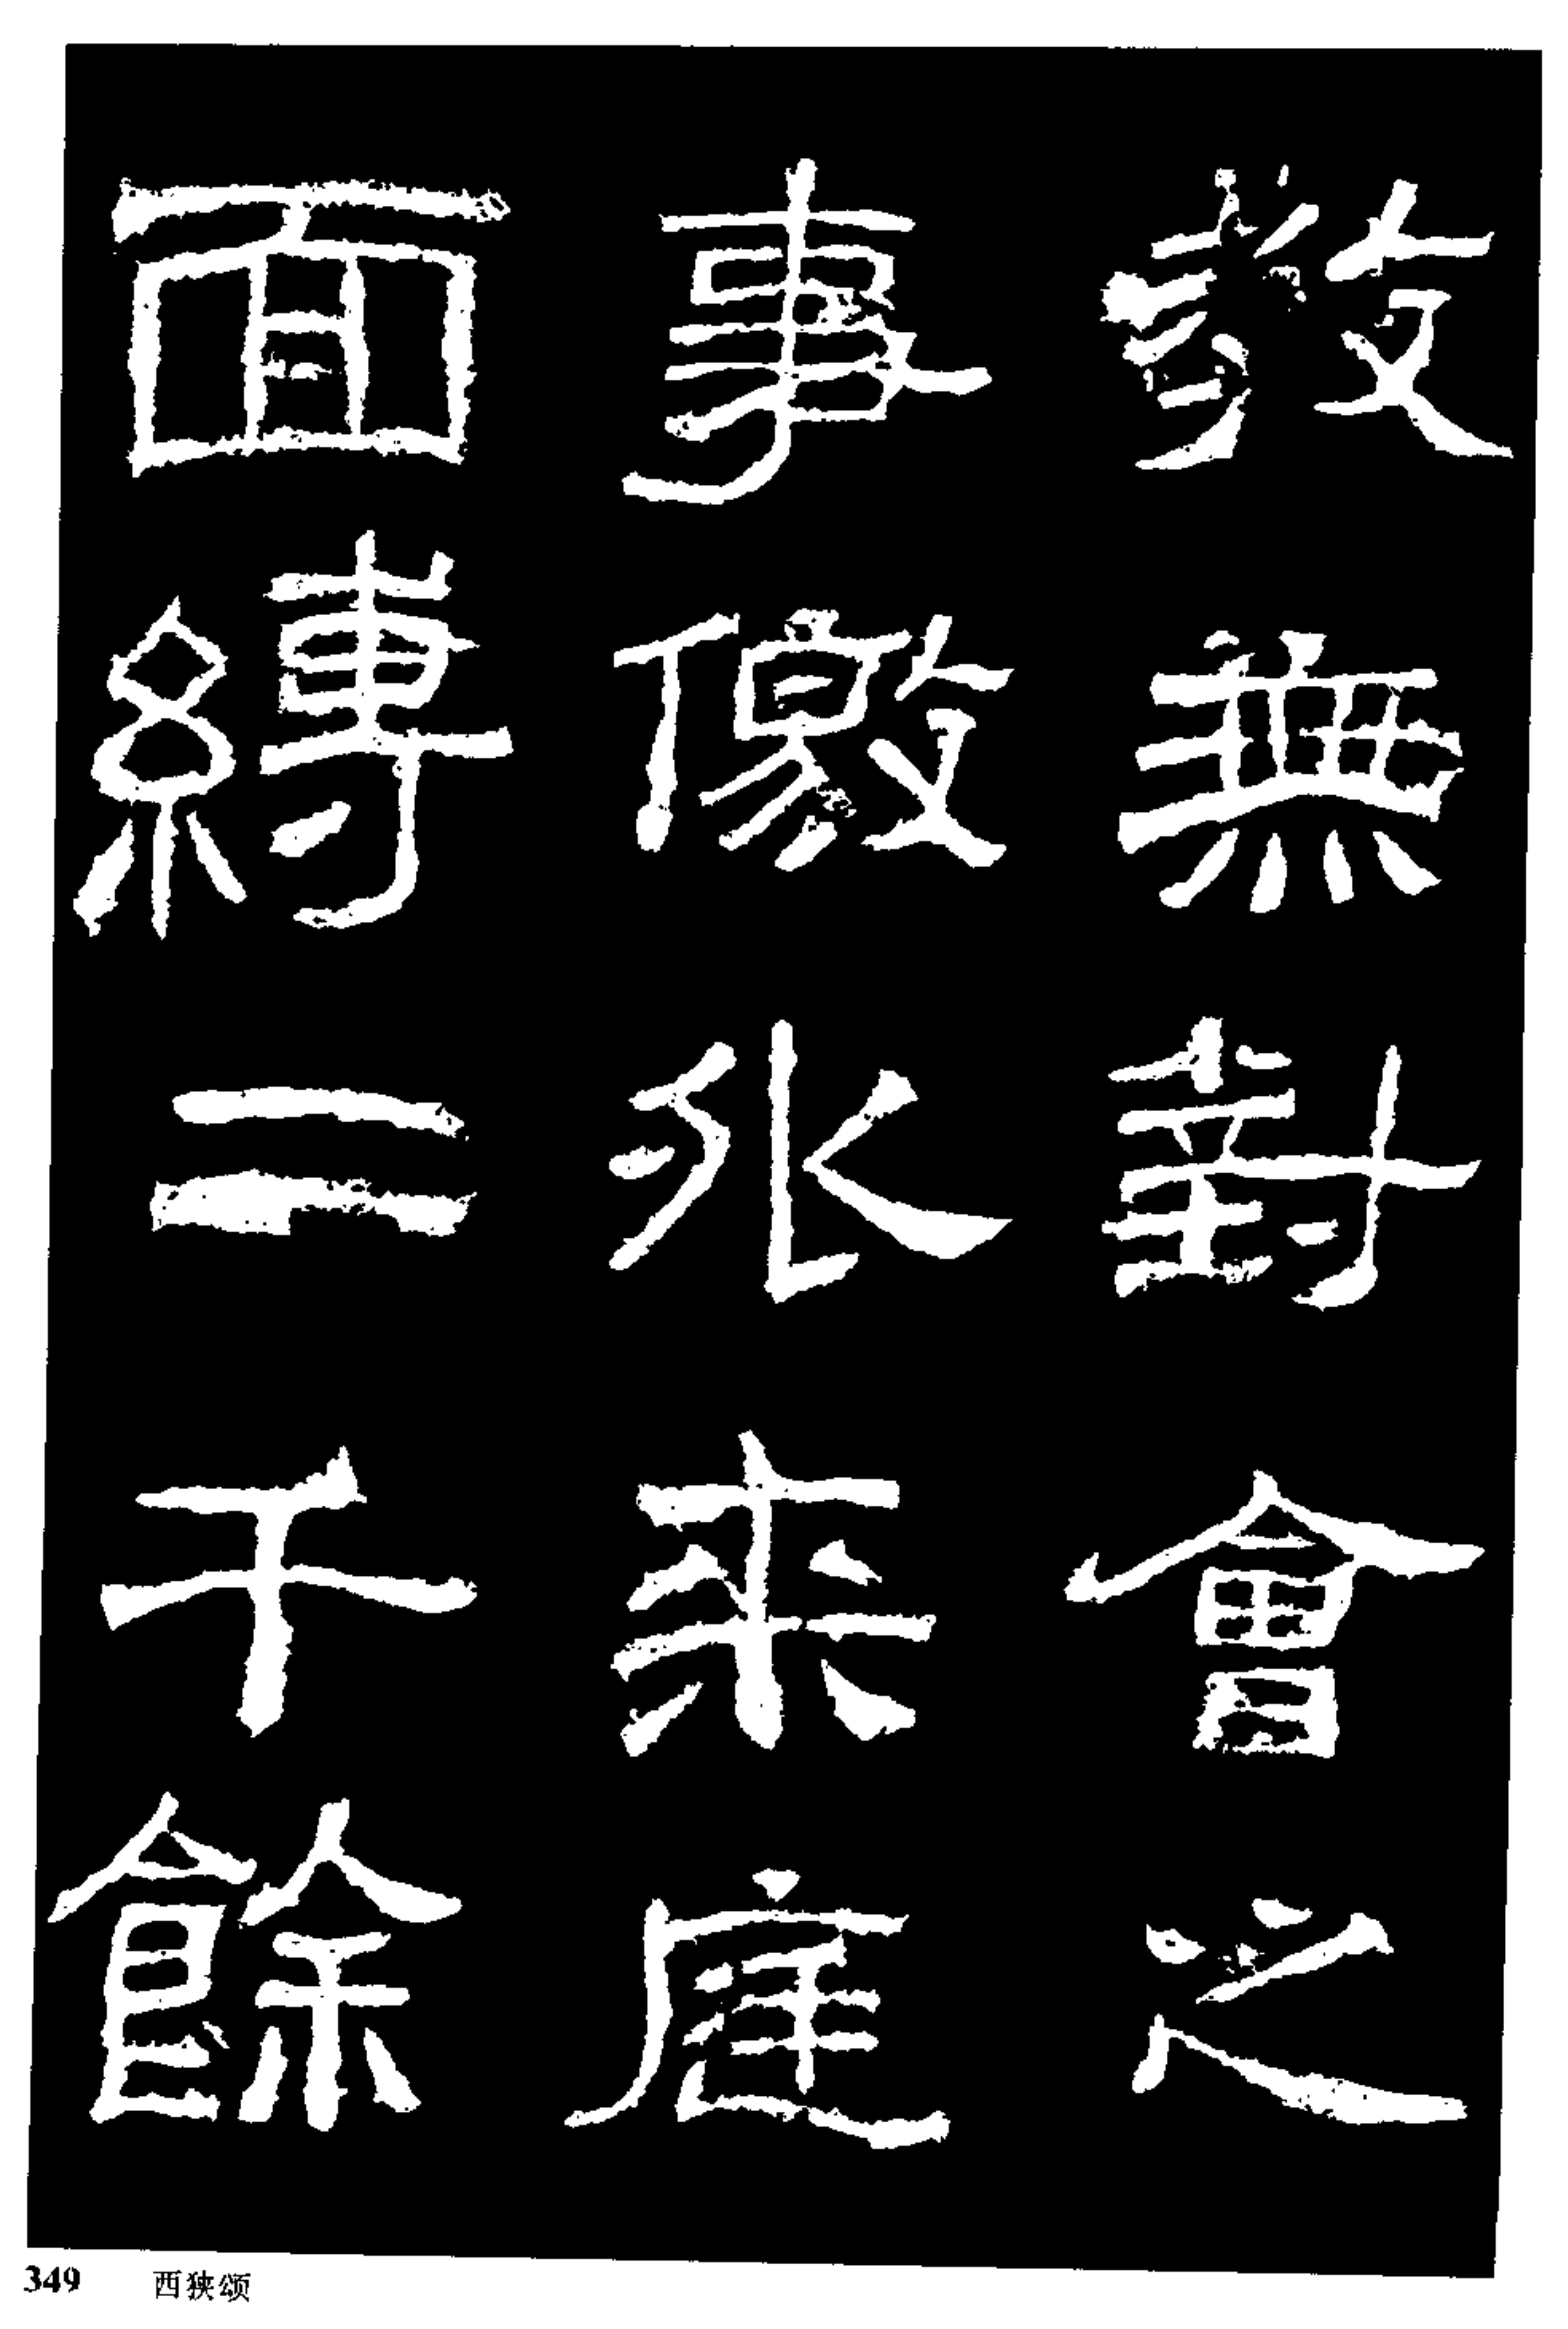 教無對會之
事徼外來庭
面縛二千餘
349 西狭颂